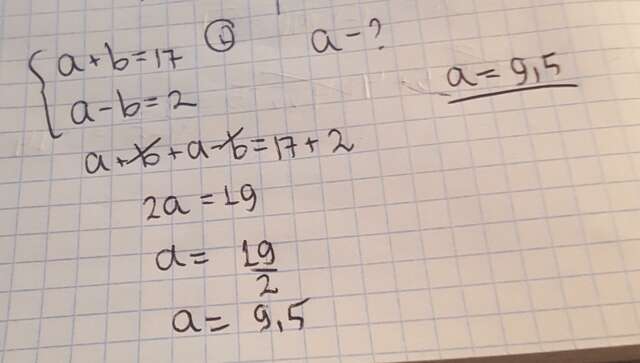 { a + b = 17 ⊕ a - ?
a - b = 2
a = 9,5
a + b + a - b = 17 + 2
2a = 19
a = 19/2
a = 9,5